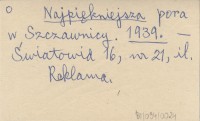 o
Najpiękniejsza pora
w Szczawnicy. 1939. —
Światowid 16, nr 21, il.
Reklama.